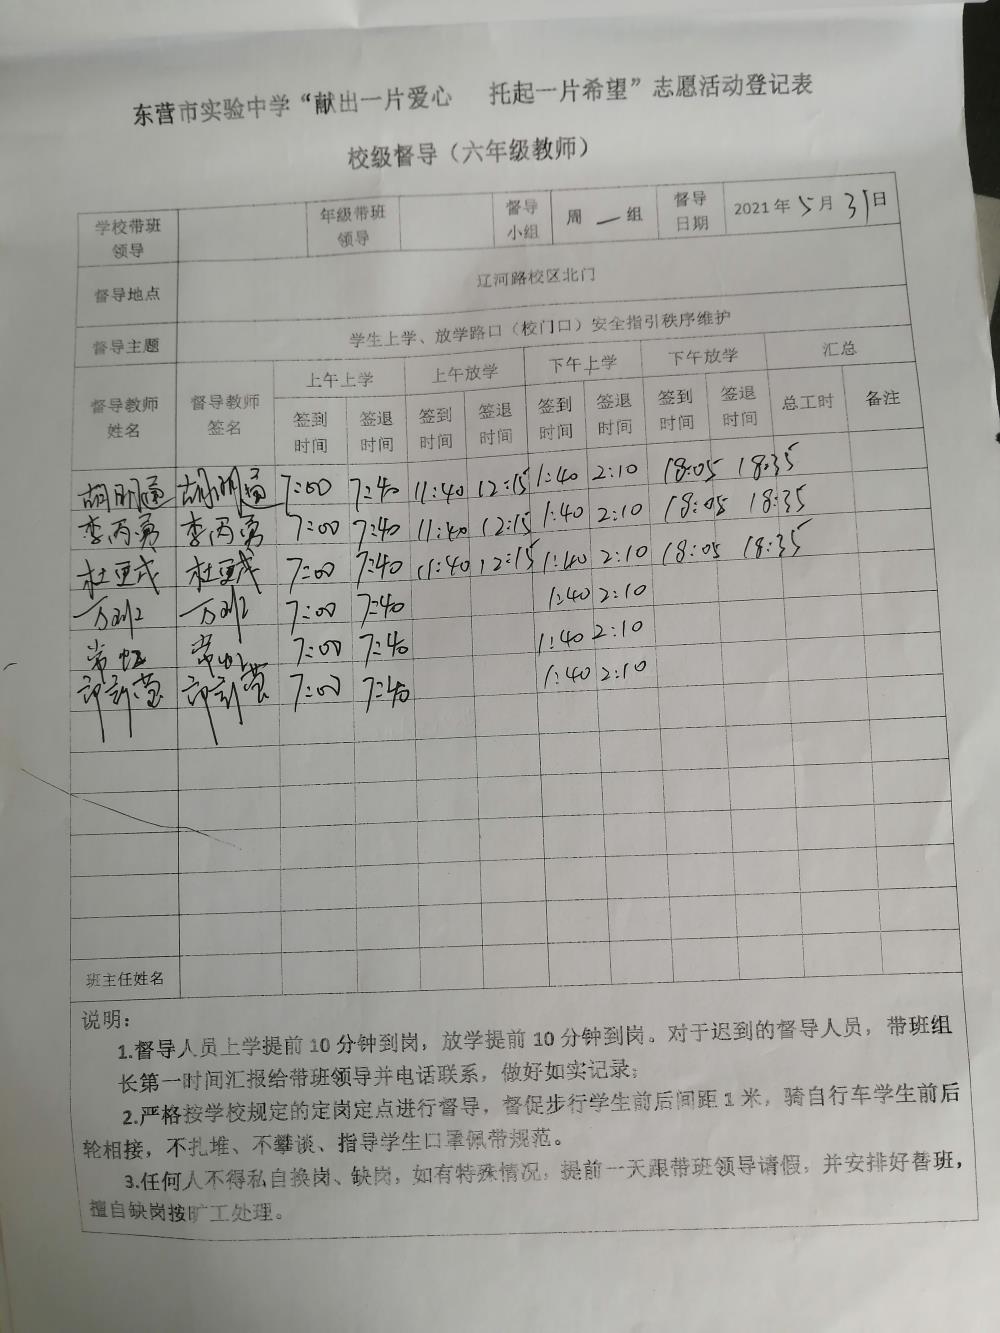 东营市实验中学“献出一片爱心 托起一片希望”志愿活动登记表
校级督导（六年级教师）
学校带班领导 年级带班领导 督导小组 周一组 督导日期 2021年5月31日
督导地点 辽河路校区北门
督导主题 学生上学、放学路口（校门口）安全指引秩序维护
督导教师姓名 督导教师签名 上午上学 上午放学 下午上学 下午放学 汇总
签到时间 签退时间 签到时间 签退时间 签到时间 签退时间 签到时间 签退时间 总工时 备注
胡明通 胡明通 7:00 7:40 11:40 12:15 1:40 2:10 18:05 18:35
李丙勇 李丙勇 7:00 7:40 11:40 12:15 1:40 2:10 18:05 18:35
杜亚茂 杜亚茂 7:00 7:40 11:40 12:15 1:40 2:10 18:05 18:35
7:00 7:40 1:40 2:10
常虹 常虹 7:00 7:40 1:40 2:10
7:00 7:40 1:40 2:10
班主任姓名
说明：
1.督导人员上学提前10分钟到岗，放学提前10分钟到岗。对于迟到的督导人员，带班组
长第一时间汇报给带班领导并电话联系，做好如实记录；
2.严格按学校规定的定岗定点进行督导，督促步行学生前后间距1米，骑自行车学生前后
轮相接，不扎堆、不攀谈、指导学生口罩佩带规范。
3.任何人不得私自换岗、缺岗，如有特殊情况，提前一天跟带班领导请假，并安排好替班，
擅自缺岗按旷工处理。